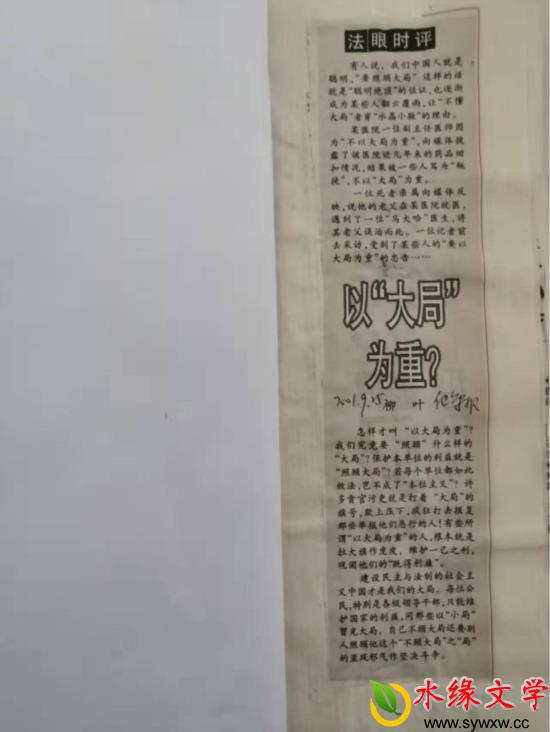 法眼时评
有人说，我们中国人就是
聪明，“要照顾大局”这样的话
就是“聪明绝顶”的佐证，也逐渐
成为某些人翻云覆雨，让“不懂
大局”者穿“水晶小鞋”的理由。
某医院一位副主任医师因
为“不以大局为重”，向媒体披
露了该医院近几年来的药品回
扣情况，结果被一些人骂为“叛
徒”，不以“大局”为重。
一位死者亲属向媒体反
映，说他的老父在某医院就医，
遇到了一位“马大哈”医生，将
其老父误治而死。一位记者前
去采访，受到了某些人的“要以
大局为重”的忠告……
以“大局”
为重？
2001.9.15 柳 叶
怎样才叫“以大局为重”？
我们究竟要“照顾”什么样的
“大局”？保护本单位的利益就是
“照顾大局”？若每个单位都如此
效法，岂不成了“本位主义”？许
多贪官污吏就是打着“大局”的
旗号，欺上压下，疯狂打击报复
那些举报他们恶行的人！有些所
谓“以大局为重”的人，根本就是
拉大旗作虎皮，维护一己之利，
巩固他们的“既得利益”。
建设民主与法制的社会主
义中国才是我们的大局。每位公
民，特别是各级领导干部，只能维
护国家的利益，同那些以“小局”
冒充大局，自己不顾大局还要别
人照顾他这个“不顾大局”之“局”
的歪风邪气作坚决斗争。
水缘文学
www.sywxw.cc